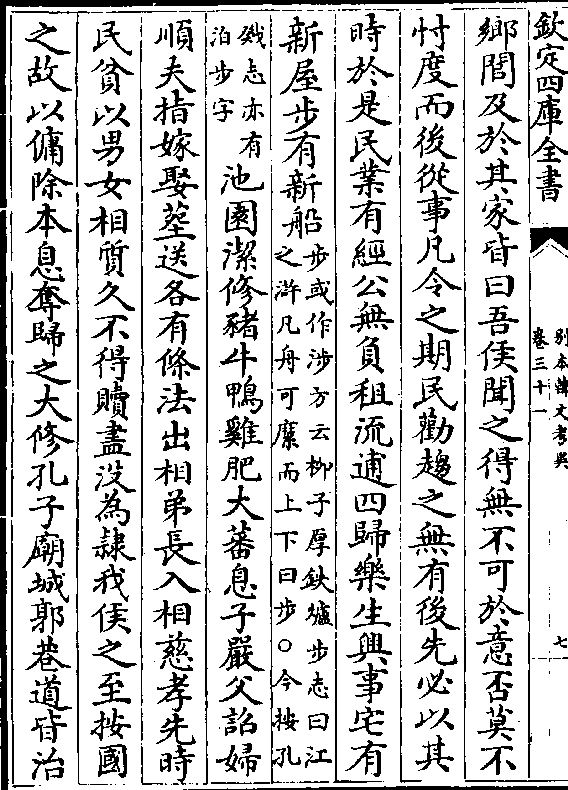 欽定四庫全書
別本韓文考異
卷三十一
七
鄉閭及於其家皆曰吾侯聞之得無不可於意否莫不
忖度而後從事凡令之期民勸趨之無有後先必以其
時於是民業有經公無負租流逋四歸樂生興事宅有
新屋步有新船
步或作涉方云柳子厚鉄爐步志曰江
之滸凡舟可縻而上下曰步○今按孔
戣志亦有
泊步字
池園潔修豬牛鴨雞肥大蕃息子嚴父詔婦
順夫指嫁娶塟送各有條法出相弟長入相慈孝先時
民貧以男女相質久不得贖盡沒為隸我侯之至按國
之故以傭除本息奪歸之大修孔子廟城郭巷道皆治